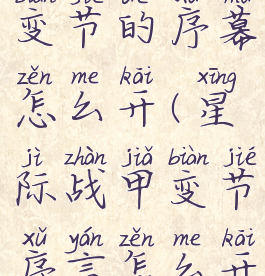 变节的序幕
zěn me kāi xīng
怎么开(星
jì zhàn jiǎ biàn jié
际战甲变节
xù yán zěn me kāi
序言怎么开